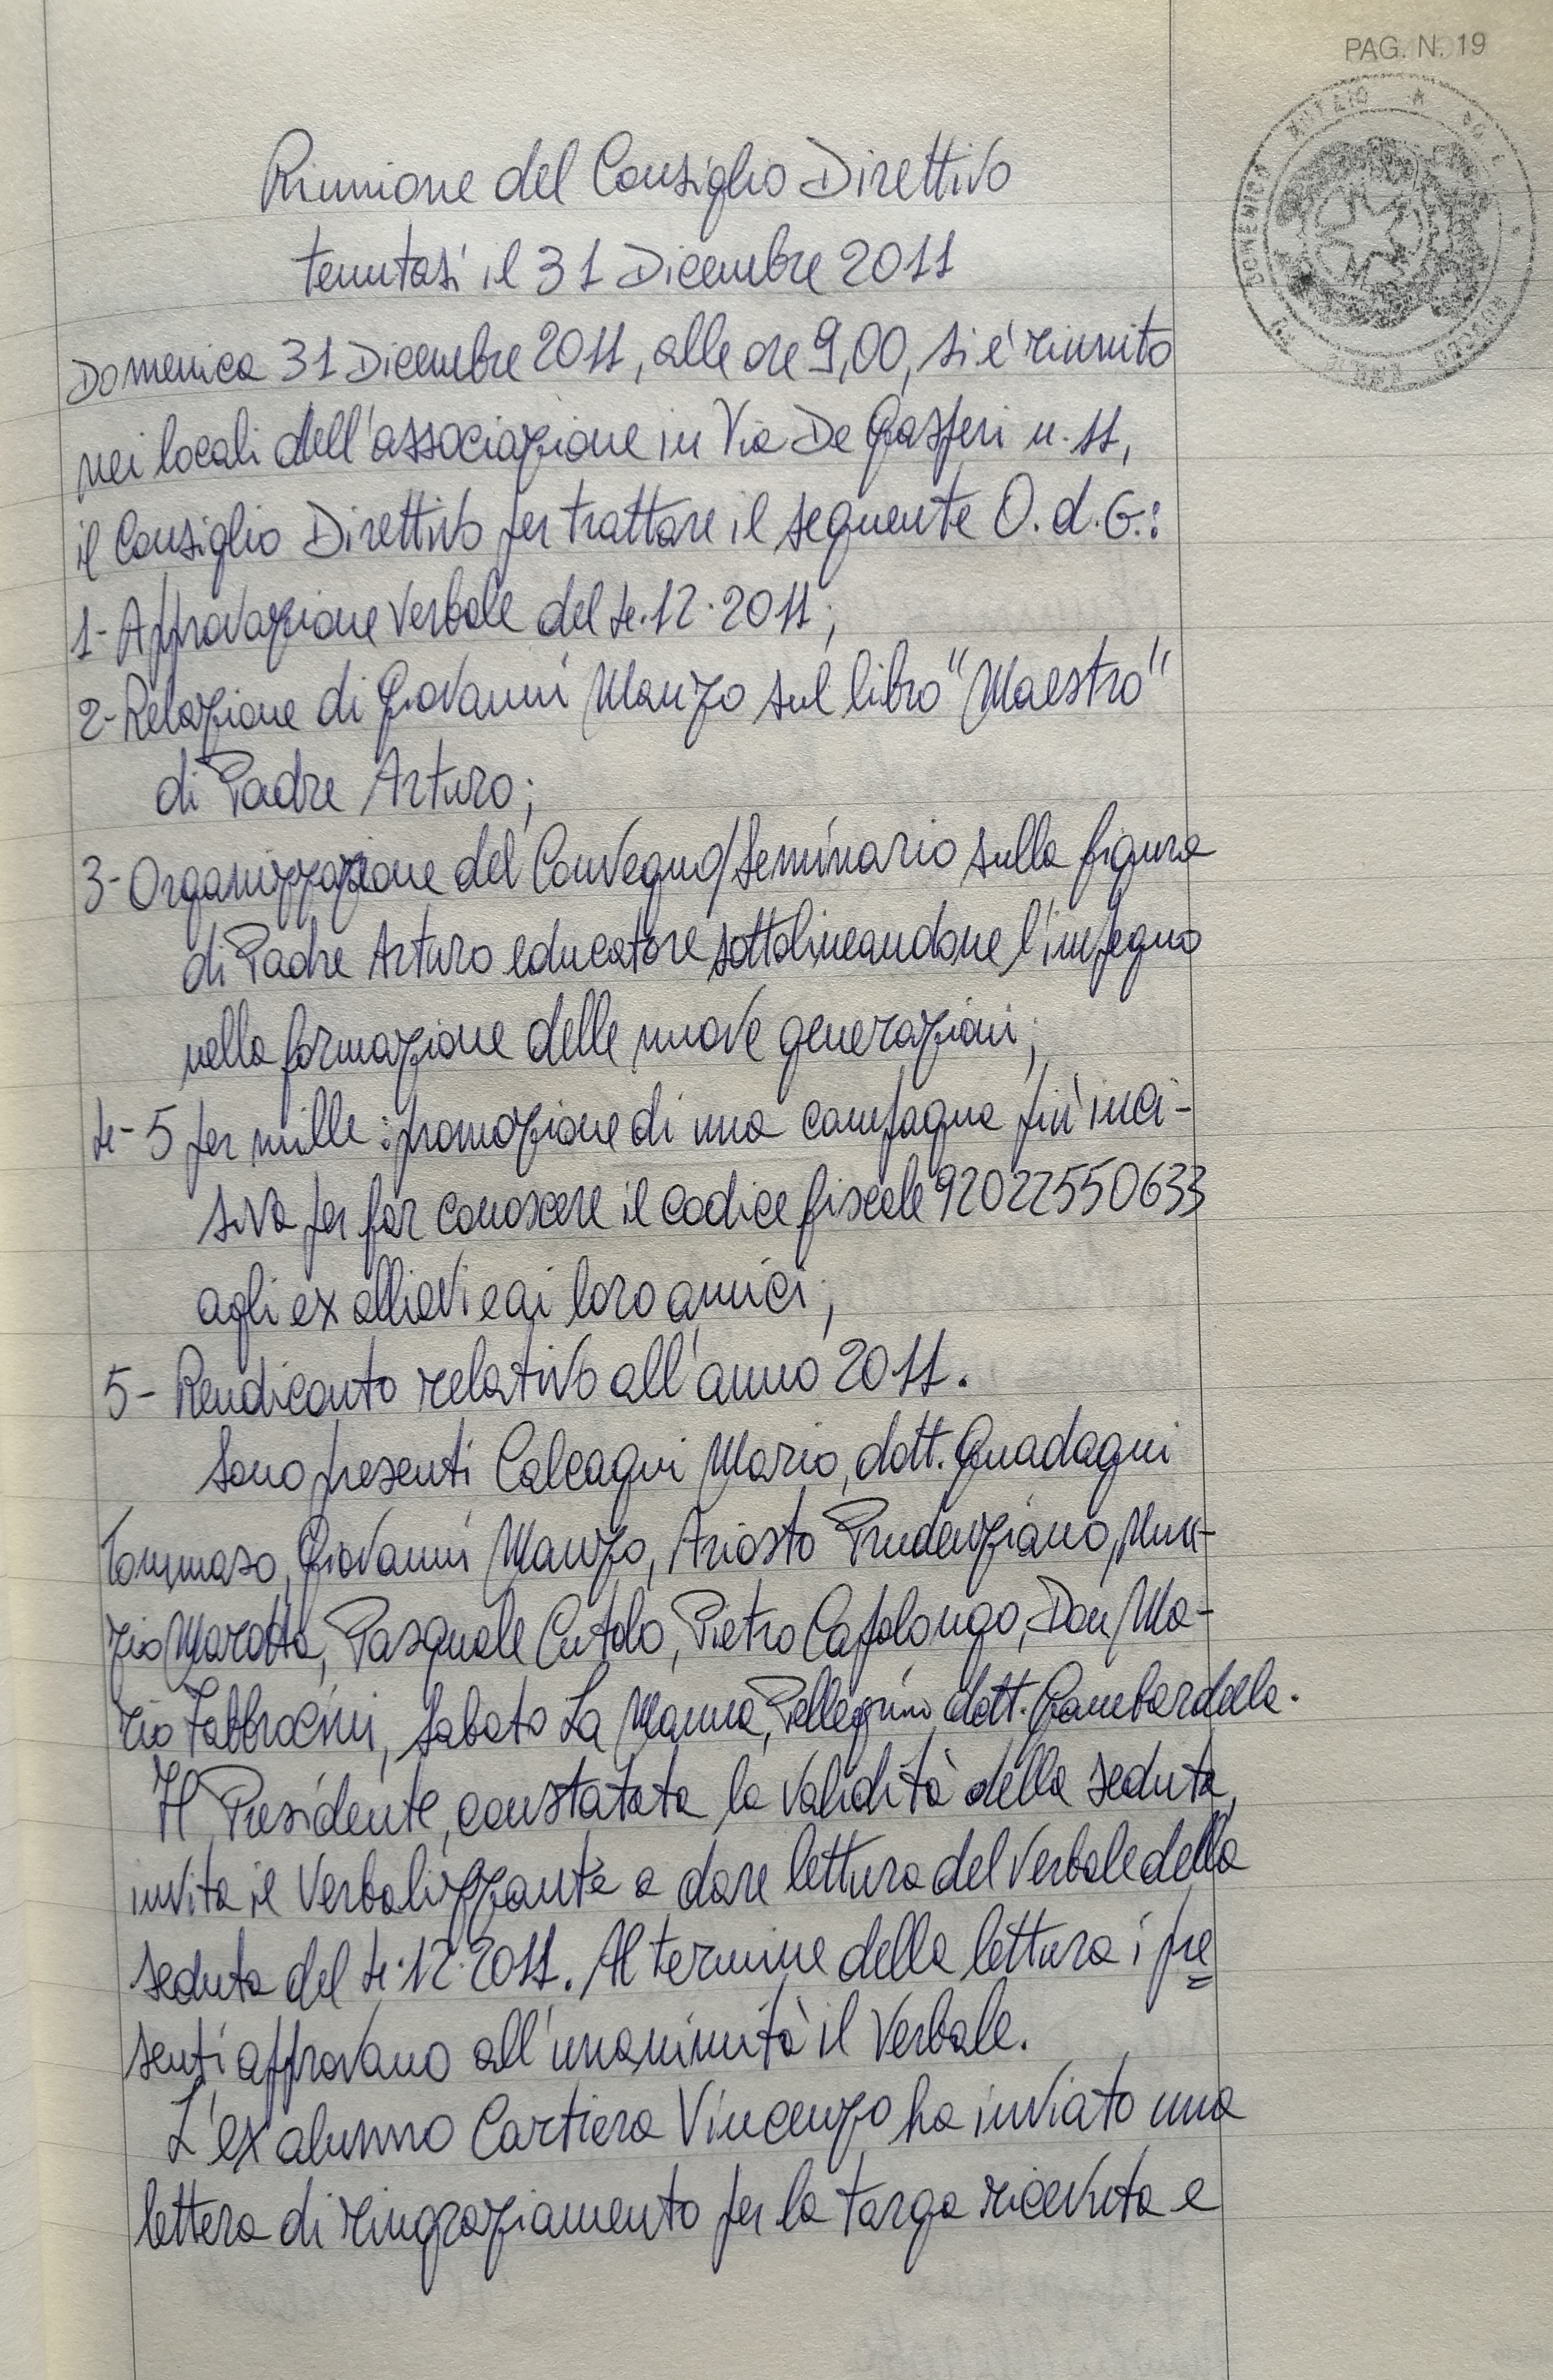 PAG. N. 19
Riunione del Consiglio Direttivo
tenutasi il 31 Dicembre 2011
Domenica 31 Dicembre 2011, alle ore 9,00, si è riunito
nei locali dell'associazione in Via De Gasperi n. 11,
il Consiglio Direttivo per trattare il seguente O.d.G.:
1- Approvazione verbale del 4.12.2011;
2- Relazione di Giovanni Manzo sul libro "Maestro"
di Padre Arturo;
3- Organizzazione del Convegno/Seminario sulla figura
di Padre Arturo educatore sottolineandone l'impegno
nella formazione delle nuove generazioni;
4- 5 per mille: promozione di una campagna più inci-
siva per far conoscere il codice fiscale 92022550633
agli ex allievi e ai loro amici;
5- Rendiconto relativo all'anno 2011.
Sono presenti Calcagni Mario, dott. Guadagni
Tommaso, Giovanni Manzo, Ariosto Prudenziano, Nun-
zio Marotta, Pasquale Cutolo, Pietro Capolongo, Don Ma-
rio Fabbrocini, Sabato La Manna, Pellegrino dott. Gambardella.
Il Presidente, constatata la validità della seduta,
invita il Verbalizzante a dare lettura del verbale della
seduta del 4.12.2011. Al termine della lettura i pre
senti approvano all'unanimità il Verbale.
L'ex alunno Cartiera Vincenzo ha inviato una
lettera di ringraziamento per la targa ricevuta e